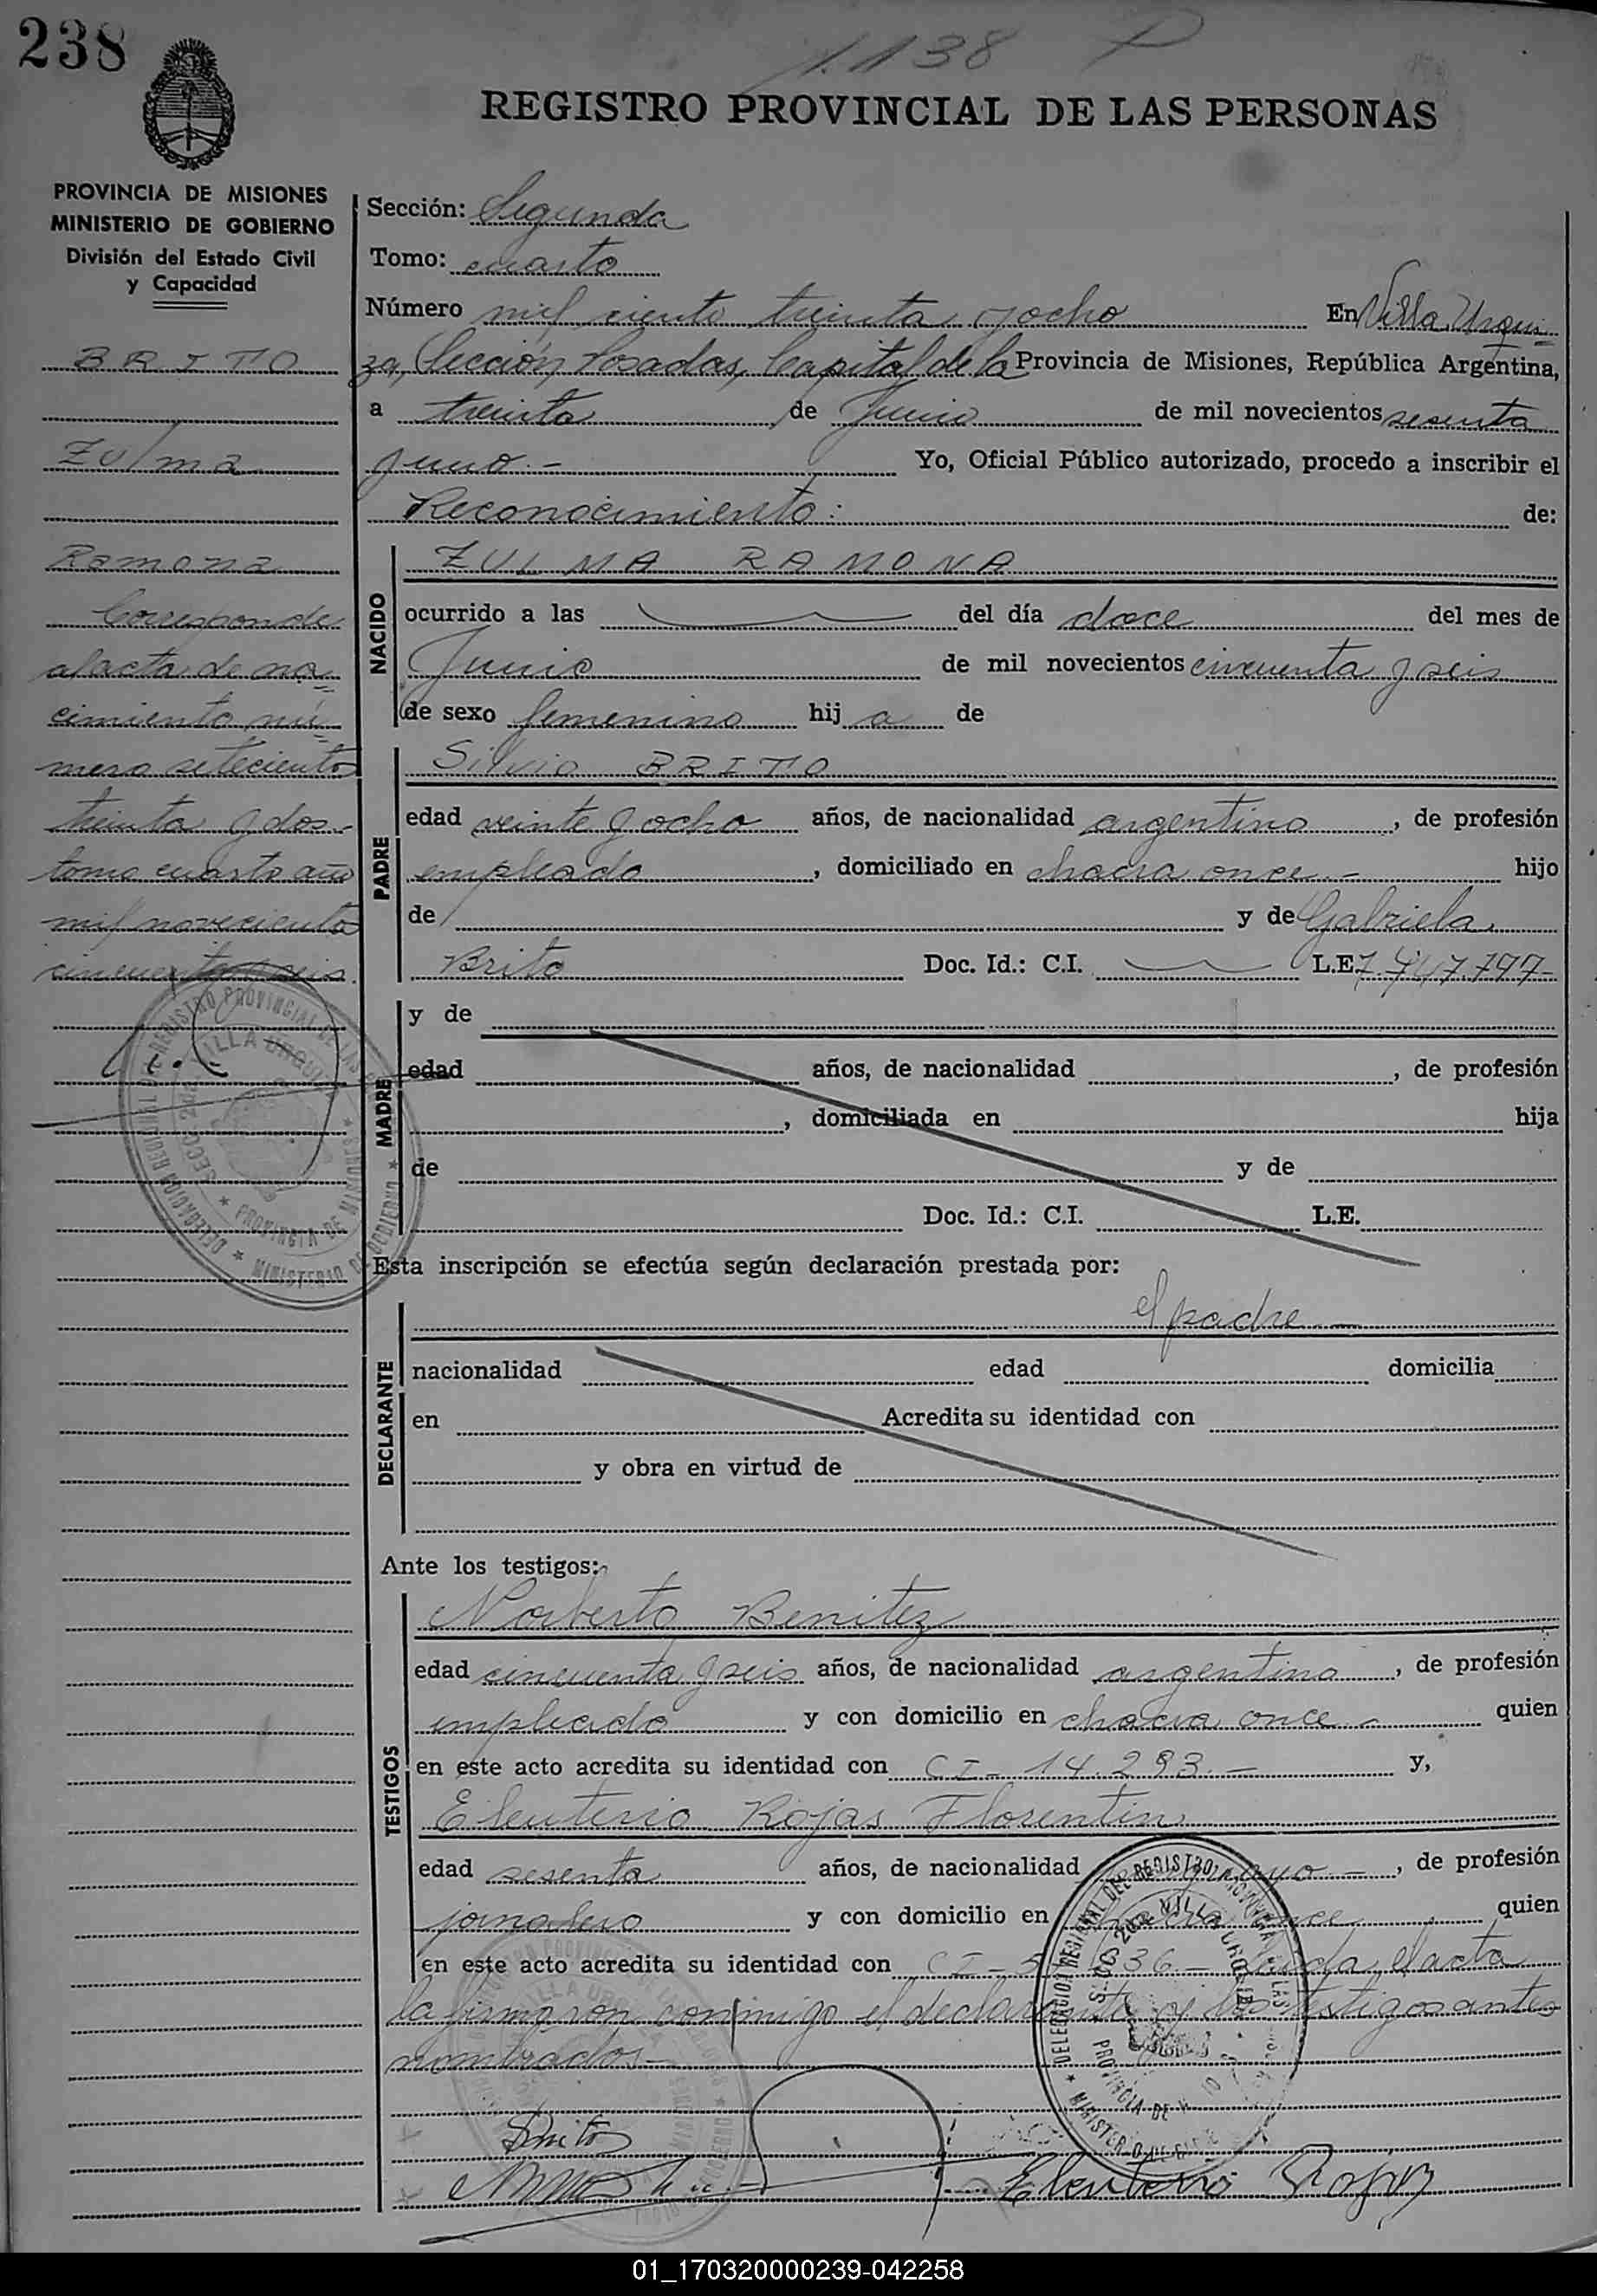 238
1.138 P
REGISTRO PROVINCIAL DE LAS PERSONAS
PROVINCIA DE MISIONES
MINISTERIO DE GOBIERNO
División del Estado Civil
y Capacidad
BRITO
Zulma
Ramona
Corresponde
al acta de na=
cimiento nú=
mero setecientos
treinta y dos.-
tomo cuarto año
mil novecientos
cincuenta y seis.
Sección: Segunda
Tomo: cuarto
Número mil ciento treinta y ocho En Villa Urqui=
za, Sección, Posadas, Capital de la Provincia de Misiones, República Argentina,
a treinta de Junio de mil novecientos sesenta
y uno.- Yo, Oficial Público autorizado, procedo a inscribir el
Reconocimiento: de:
NACIDO
ZULMA RAMONA
ocurrido a las del día doce del mes de
Junio de mil novecientos cincuenta y seis
de sexo femenino hij a de
PADRE
Silvio BRITO
edad veinte y ocho años, de nacionalidad argentino, de profesión
empleado, domiciliado en chacra once.- hijo
de y de Gabriela
Brito Doc. Id.: C.I. L.E. 7.447.797-
MADRE
y de
edad años, de nacionalidad , de profesión
, domiciliada en hija
de y de
Doc. Id.: C.I. L.E.
Esta inscripción se efectúa según declaración prestada por:
el padre.-
DECLARANTE
nacionalidad edad domicilia
en Acredita su identidad con
y obra en virtud de
Ante los testigos:
TESTIGOS
Norberto Benitez
edad cincuenta y seis años, de nacionalidad argentino, de profesión
empleado y con domicilio en chacra once.- quien
en este acto acredita su identidad con CI- 14.293.- y,
Eleuterio Rojas Florentin
edad sesenta años, de nacionalidad , de profesión
jornalero y con domicilio en once quien
en este acto acredita su identidad con CI- 36.- Leida, el acta
la firmaron conmigo el declarante y los testigos antes
nombrados.-
Brito
Eleuterio Rojas
01_170320000239-042258